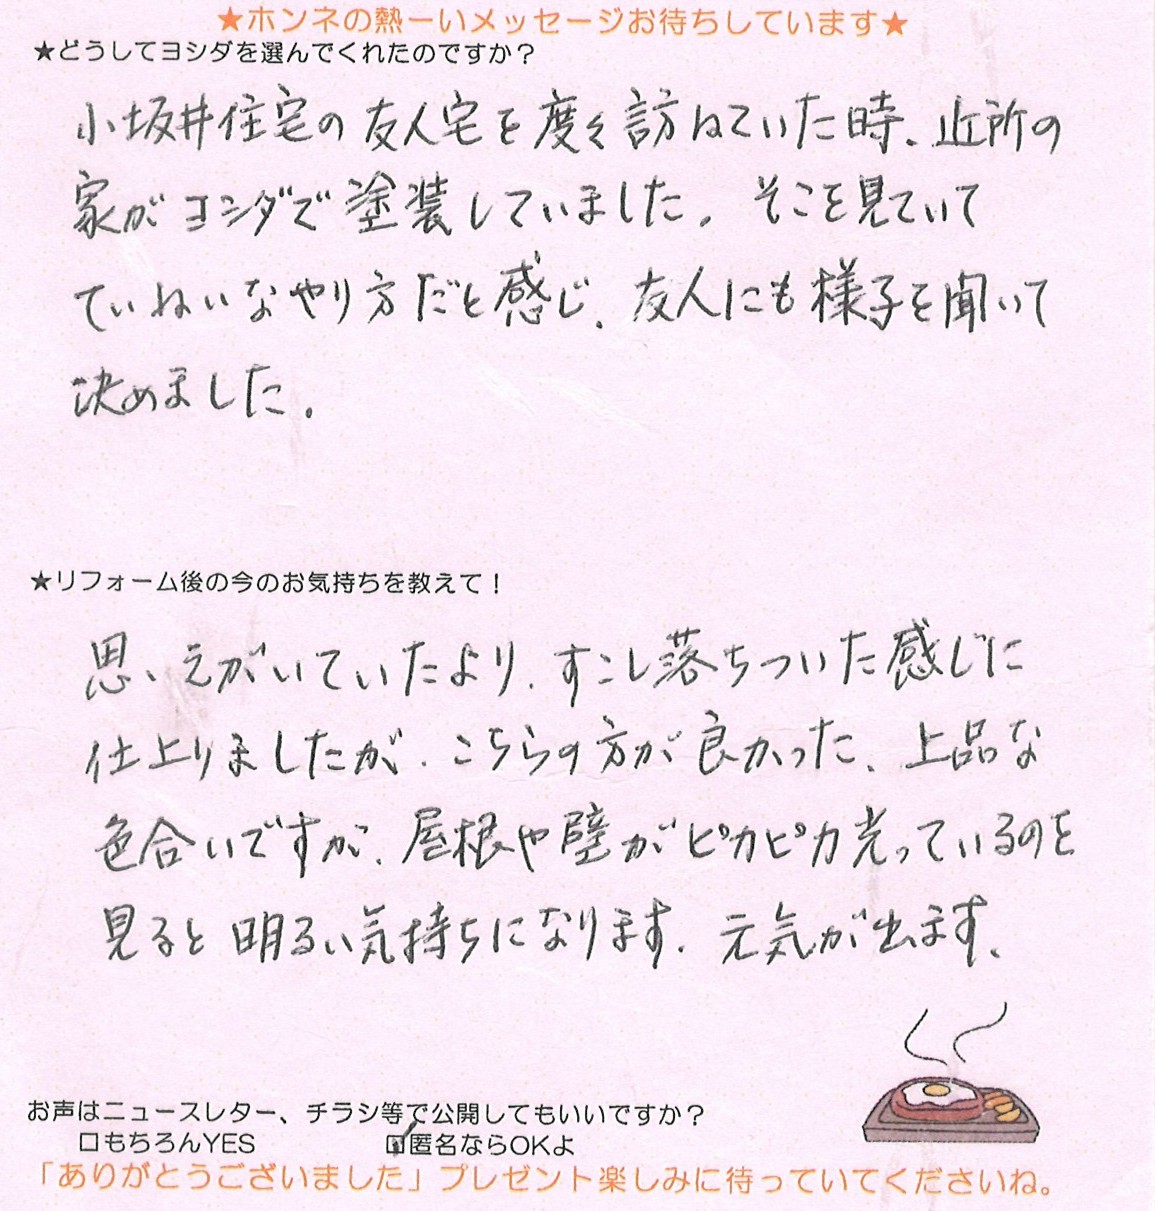 ★ホンネの熱ーいメッセージお待ちしています★
★どうしてヨシダを選んでくれたのですか？
小坂井住宅の友人宅を度々訪ねていた時、近所の
家がヨシダで塗装していました。そこを見ていて
ていねいなやり方だと感じ、友人にも様子を聞いて
決めました。
★リフォーム後の今のお気持ちを教えて！
思いえがいていたより、すこし落ちついた感じに
仕上りましたが、こちらの方が良かった、上品な
色合いですが、屋根や壁がピカピカ光っているのを
見ると明るい気持ちになります。元気が出ます、
お声はニュースレター、チラシ等で公開してもいいですか？
□もちろんYES ☑匿名ならOKよ
「ありがとうございました」プレゼント楽しみに待っていてくださいね。